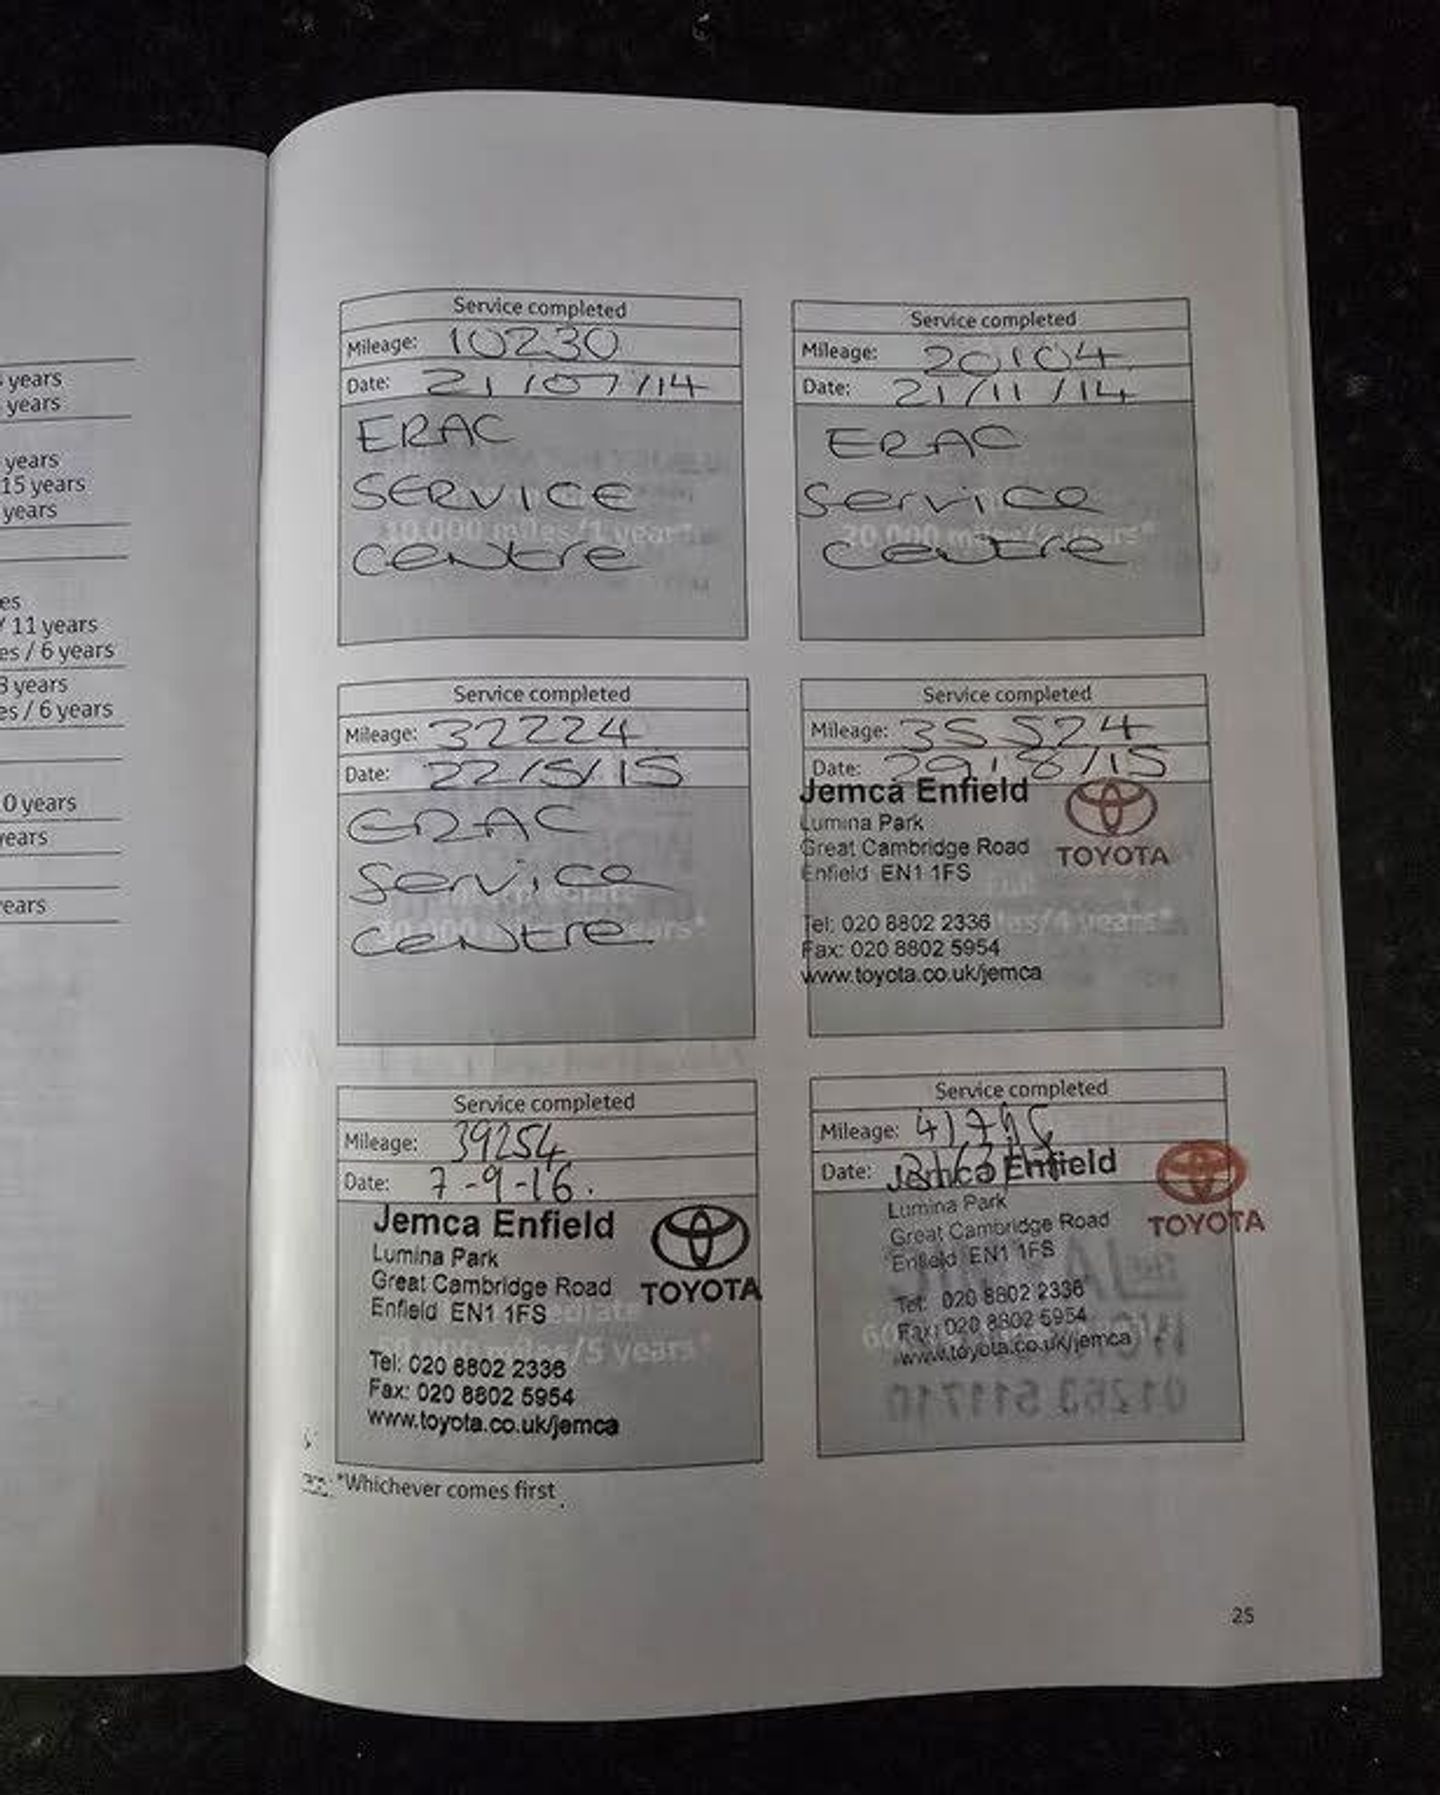 years
years
years
15 years
years
es
/ 11 years
es / 6 years
8 years
es / 6 years
0 years
years
years
Service completed
Mileage: 10230
Date: 21/07/14
ERAC
SERVICE
centre
10,000 miles/1 year*
Service completed
Mileage: 20104
Date: 21/11/14
ERAC
Service
centre
20,000 miles/2 years*
Service completed
Mileage: 32224
Date: 22/5/15
ERAC
Service
centre
Service completed
Mileage: 35524
Date: 29/8/15
Jemca Enfield
Lumina Park
Great Cambridge Road
Enfield EN1 1FS
TOYOTA
Tel: 020 8802 2336
Fax: 020 8802 5954
www.toyota.co.uk/jemca
/4 years*
Service completed
Mileage: 39254
Date: 7-9-16.
Jemca Enfield
Lumina Park
Great Cambridge Road
Enfield EN1 1FS
TOYOTA
miles/5 years*
Tel: 020 8802 2336
Fax: 020 8802 5954
www.toyota.co.uk/jemca
Service completed
Mileage:
Date:
Jemca Enfield
Lumina Park
Great Cambridge Road
Enfield EN1 1FS
TOYOTA
Tel: 020 8802 2336
Fax: 020 8802 5954
www.toyota.co.uk/jemca
*Whichever comes first
25